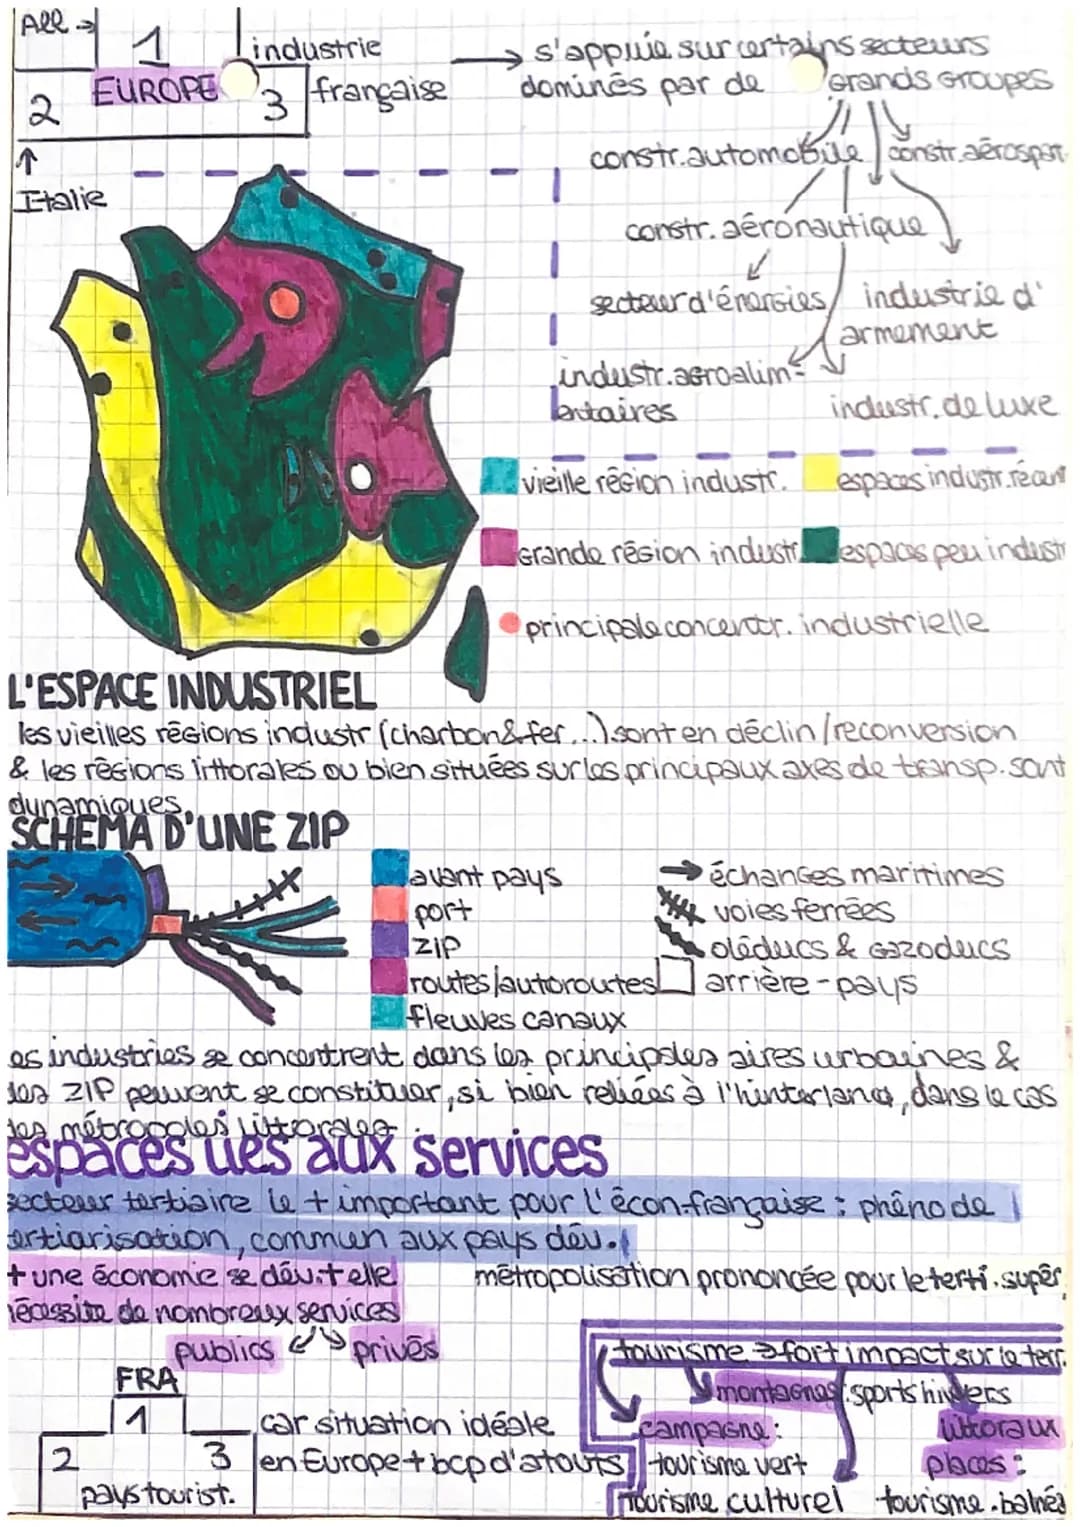 All →
1
industrie
EUROPE
2
3
française
→ s'appuie sur certains secteurs
dominés par de grands groupes
↑
Italie
constr. automobile
constr. aérospat
constr. aéronautique
secteur d'énergies
industrie d'
armement
industr. agroalim-
entaires
industr. de luxe
vieille région industr.
espaces industr. récent
grande région industr.
espaces peu industr
principale concentr. industrielle
L'ESPACE INDUSTRIEL
les vieilles régions industr (charbon & fer...) sont en déclin/reconversion
& les régions littorales ou bien situées sur les principaux axes de transp. sont
dynamiques.
SCHÉMA D'UNE ZIP
avant pays
→ échanges maritimes
port
voies ferrées
ZIP
oléducs & gazoducs
routes/autoroutes
arrière-pays
fleuves canaux
es industries se concentrent dans les principales aires urbaines &
des ZIP peuvent se constituer, si bien reliées à l'hinterland, dans le cas
des métropoles littorales
espaces liés aux services
secteur tertiaire le + important pour l'écon. française : phéno de
ertiarisation, commun aux pays dév.
+ une économie se dév. + elle
métropolisation prononcée pour le terti. supér.
nécessite de nombreux services
publics
privés
tourisme → fort impact sur le terr.
FRA
montagnes : sports hivers
1
car situation idéale
campagne :
littoraux
2
3
en Europe + bcp d'atouts
tourisme vert
places :
pays tourist.
tourisme culturel
tourisme. balnéa